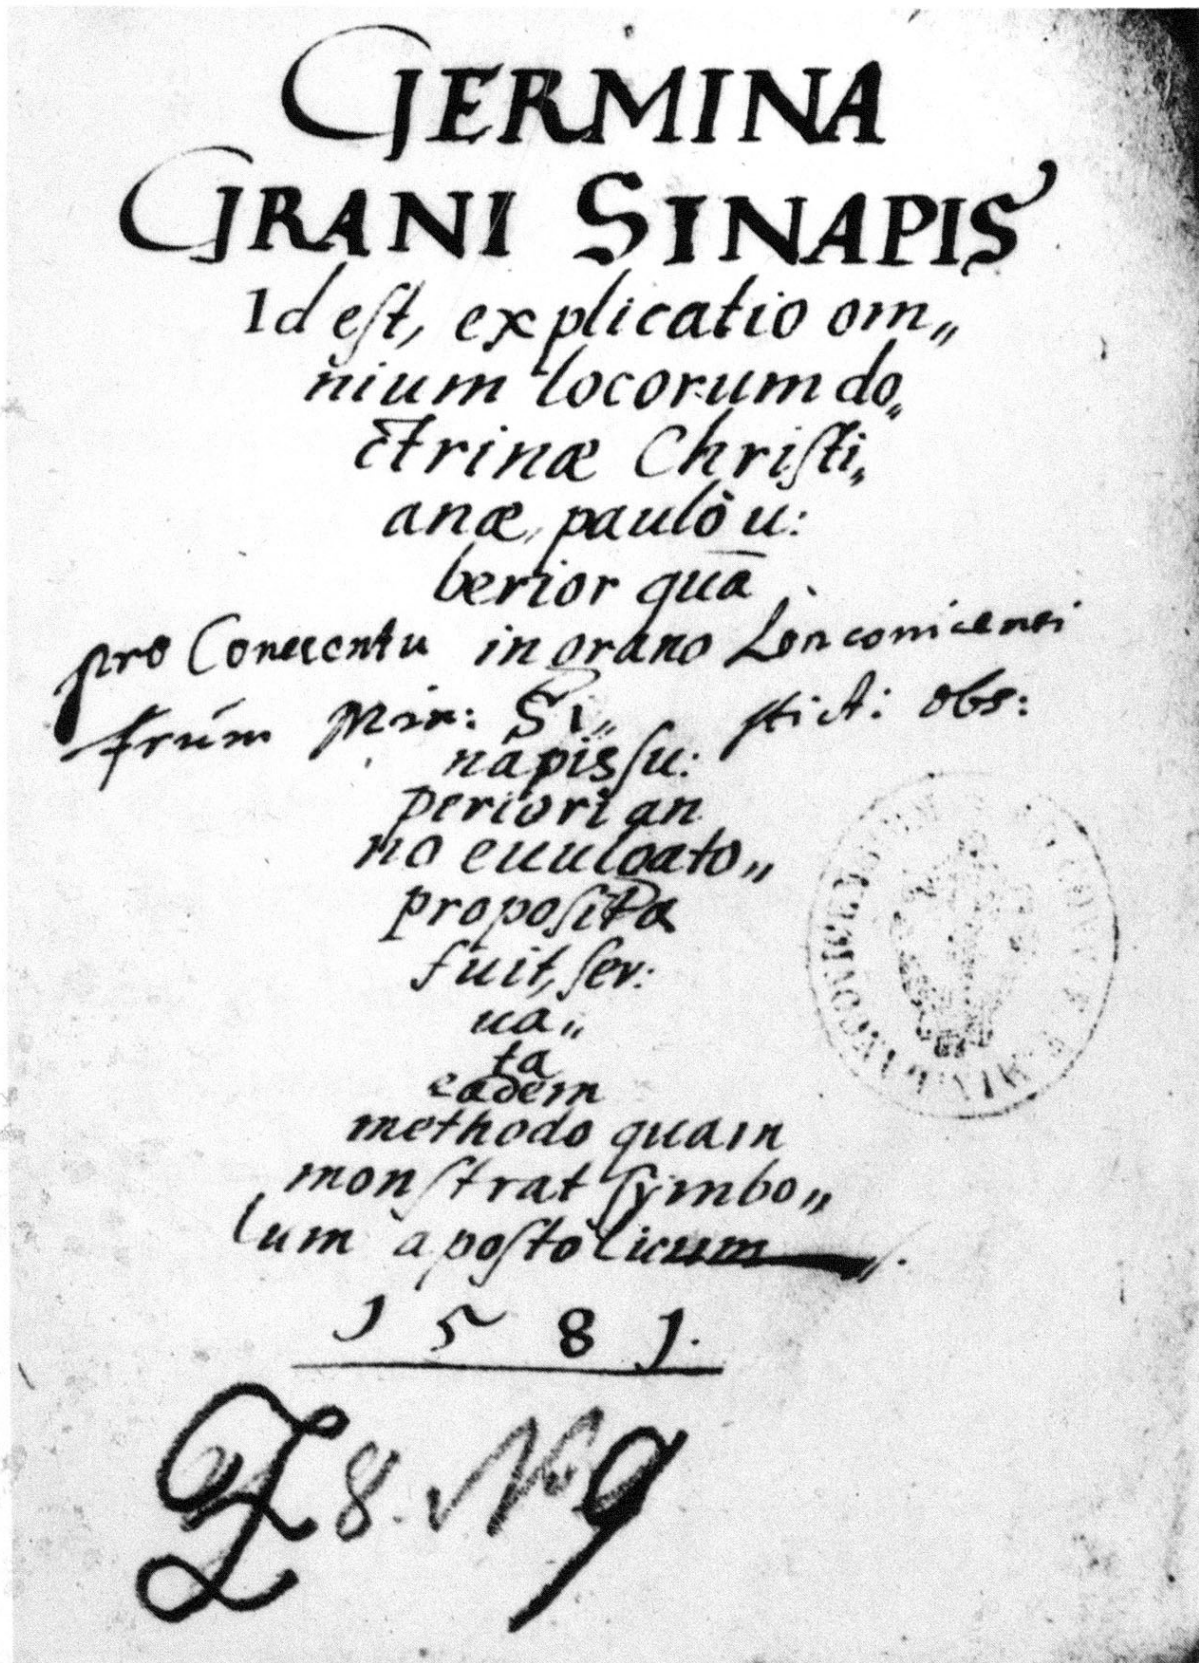 GERMINA
GRANI SINAPIS
Id est, explicatio om„
nium locorum do„
ctrinæ Christi„
anæ, paulò u:
berior quā
pro Conuentu in grano Lonconicensi
frūm Min: Si„ stict: obs:
napis su:
periori an
no euulgato„
proposita
fuit, ser:
ua„
ta
eadem
methodo quam
monstrat symbo„
lum apostolicum
1581.
8. N 9